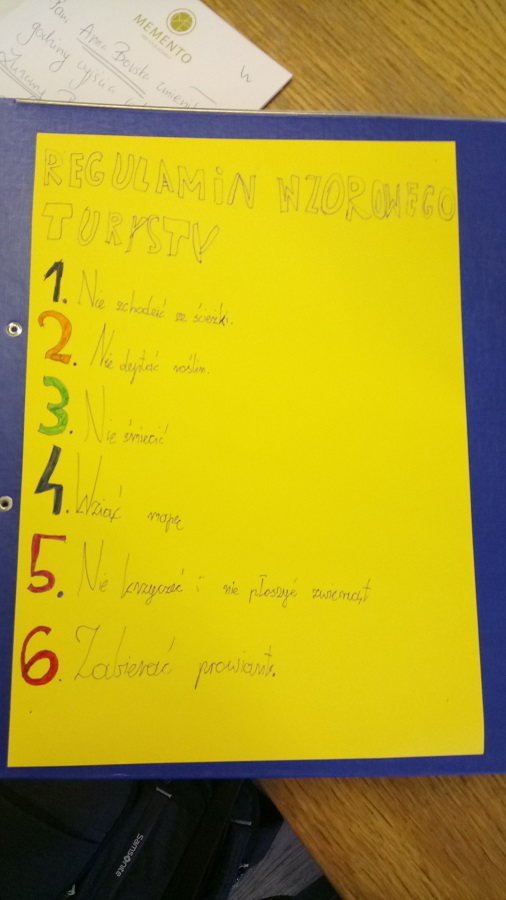 MEMENTO
Pani Anna Borska
godziny
REGULAMIN WZOROWEGO
TURYSTY
1. Nie schodzić ze ścieżki.
2. Nie deptać roślin.
3. Nie śmiecić
4. Wziąć mapę
5. Nie krzyczeć i nie płoszyć zwierząt
6. Zabierać prowiant.
Samsonite